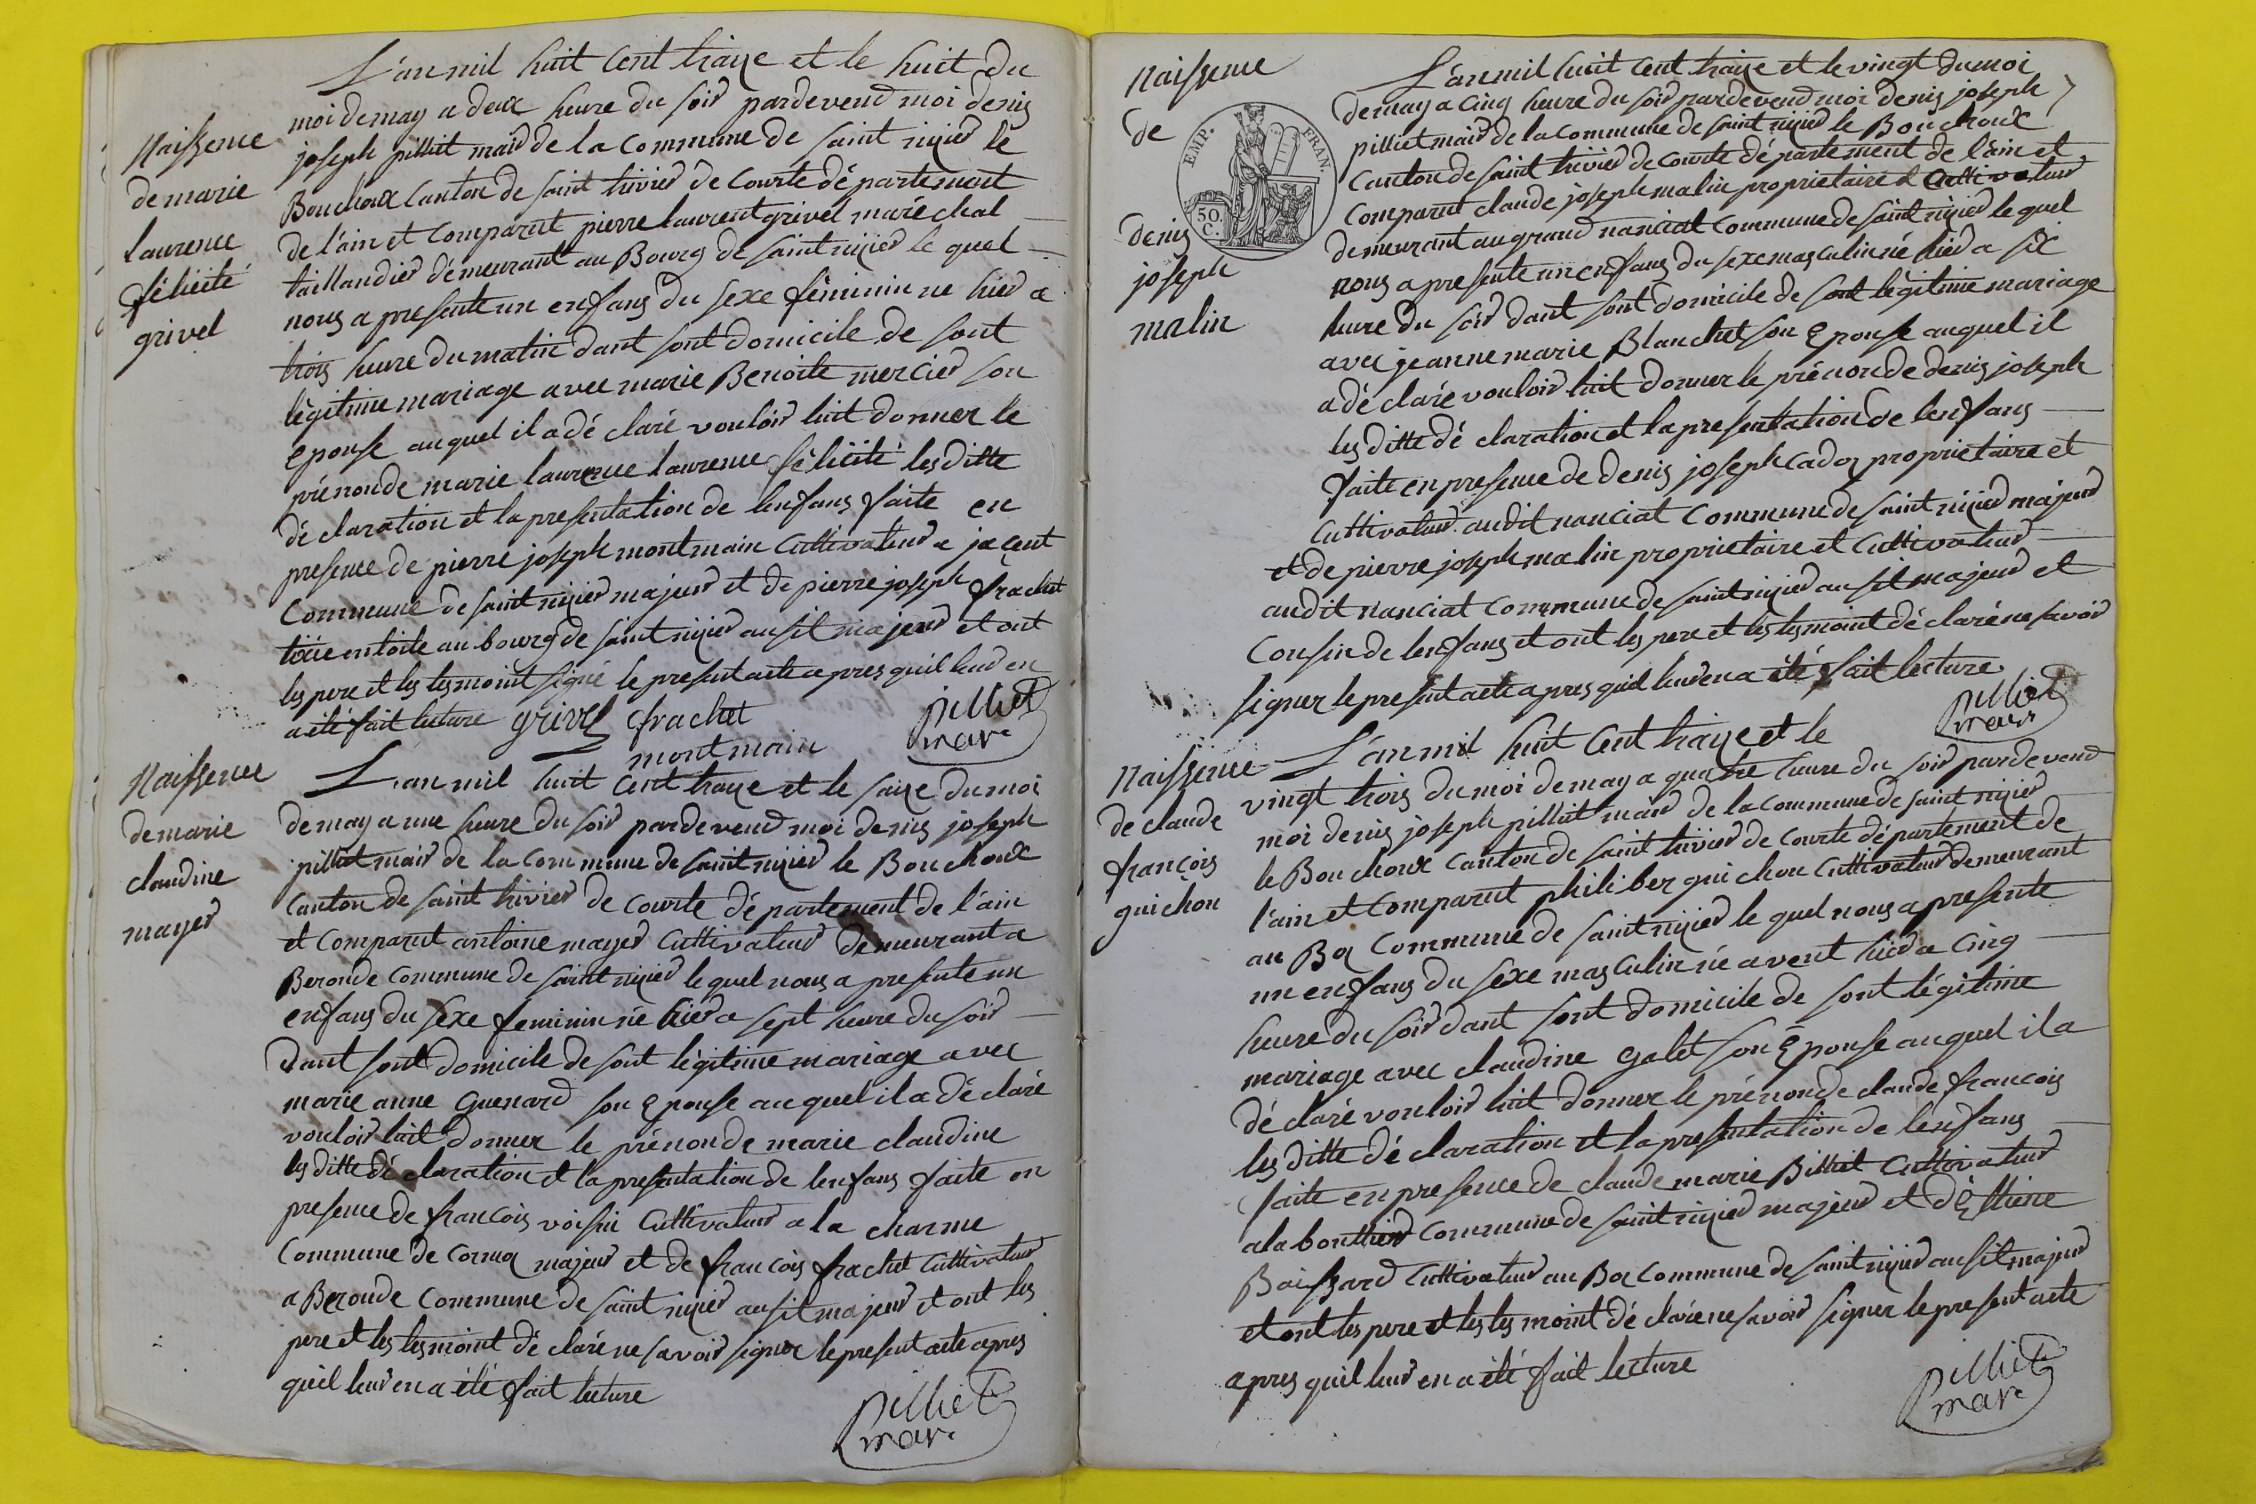 L'an mil huit cent traize et le huit du
moi de may a deux heure du soir pardevend moi denis
joseph pilliet mair de la commune de saint nizier le
Bouchoux canton de saint trivier de courte département
de l'ain et comparut pierre laurent grivel maréchal
taillandier démeurant au Bourg de saint nizier le quel
nous a presente un enfans du sexe féminin ne hier a
trois heure du matin dant sont domicile de sont
légitime mariage avec marie Benoite mercier son
epouse auquel il a dé claré vouloir luit donner le
prénon de marie laurence laurence féliicité les ditte
dé claration et la presentation de lenfans faite en
presence de pierre joseph montmain cultivateur a jacent
commune de saint nizier majeur et de pierre joseph frachet
au bourg de saint nizier ausit majeur et ont
les pere et les tesmoint signé le present acte apres quil leur en
a été fait lecture grivel frachet
montmain
Pilliet
mair
Naissence
de marie
laurence
féliicité
grivel
L'an mil huit cent traize et le saize du moi
de may a une heure du soir pardevend moi denis joseph
pilliet mair de la commune de saint nizier le Bouchoux
canton de saint trivier de courte département de l'ain
et comparut antoine mayer cultivateur demeurant a
Beronde commune de saint nizier le quel nous a presente un
enfans du sexe feminin né hier a sept heure du soir
dant sont domicile de sont légitime mariage avec
marie anne guenard son Epouse au quel il a dé claré
vouloir luit donner le prénon de marie claudine
les ditte dé claration et la presentation de lenfans faite en
presence de francois voisin cultivateur a la charme
commune de cormoz majeur et de francois frachet cultivateur
a Beronde commune de saint nizier ausit majeur et ont les
pere et les tesmoint dé claré ne savoir signer le present acte apres
quil leur en a été fait lecture
Pilliet
mair
Naissence
de marie
claudine
mayer
Naissence
de
denis
joseph
malin
EMP. FRAN.
50.
C.
L'an mil huit cent traize et le vingt du moi
de may a cinq heure du soir pardevend moi denis joseph
pilliet mair de la commune de saint nizier le Bouchoux
canton de saint trivier de courte département de l'ain et
comparut claude joseph malin proprietaire et cultivateur
demeurant au grand nanciat commune de saint nizier le quel
nous a presente un enfans du sexe masculin né hier a six
heure du soir dant sont domicile de sont légitime mariage
avec jeanne marie Blanchet son Epouse auquel il
a dé claré vouloir luit donner le prénon de denis joseph
les ditte dé claration et la presentation de lenfans
faite en presence de denis joseph cadoz proprietaire et
cultivateur audit nanciat commune de saint nizier majeur
et de pierre joseph malin proprietaire et cultivateur
audit nanciat commune de saint nizier ausit majeur et
cousin de lenfans et ont les pere et les tesmoint dé claré ne savoir
signer le present acte apres quil leur en a été fait lecture
Pilliet
mair
Naissence
de claude
françois
guichon
L'an mil huit cent traize et le
vingt trois du moi de may a quatre heure du soir pardevend
moi denis joseph pilliet mair de la commune de saint nizier
le Bouchoux canton de saint trivier de courte département de
l'ain et comparut philiber guichon cultivateur demeurant
au Boz commune de saint nizier le quel nous a presente
un enfans du sexe masculin né avent hier a cinq
heure du soir dant sont domicile de sont légitime
mariage avec claudine galet son Epouse auquel il a
dé claré vouloir luit donner le prénon de claude francois
les ditte dé claration et la presentation de lenfans
faite en presence de claude marie Billiet cultivateur
a la bouttier commune de saint nizier majeur et dEstiene
Boissard cultivateur au Boz commune de saint nizier ausit majeur
et ont les pere et les tesmoint dé claré ne savoir signer le present acte
apres quil leur en a été fait lecture
Pilliet
mair